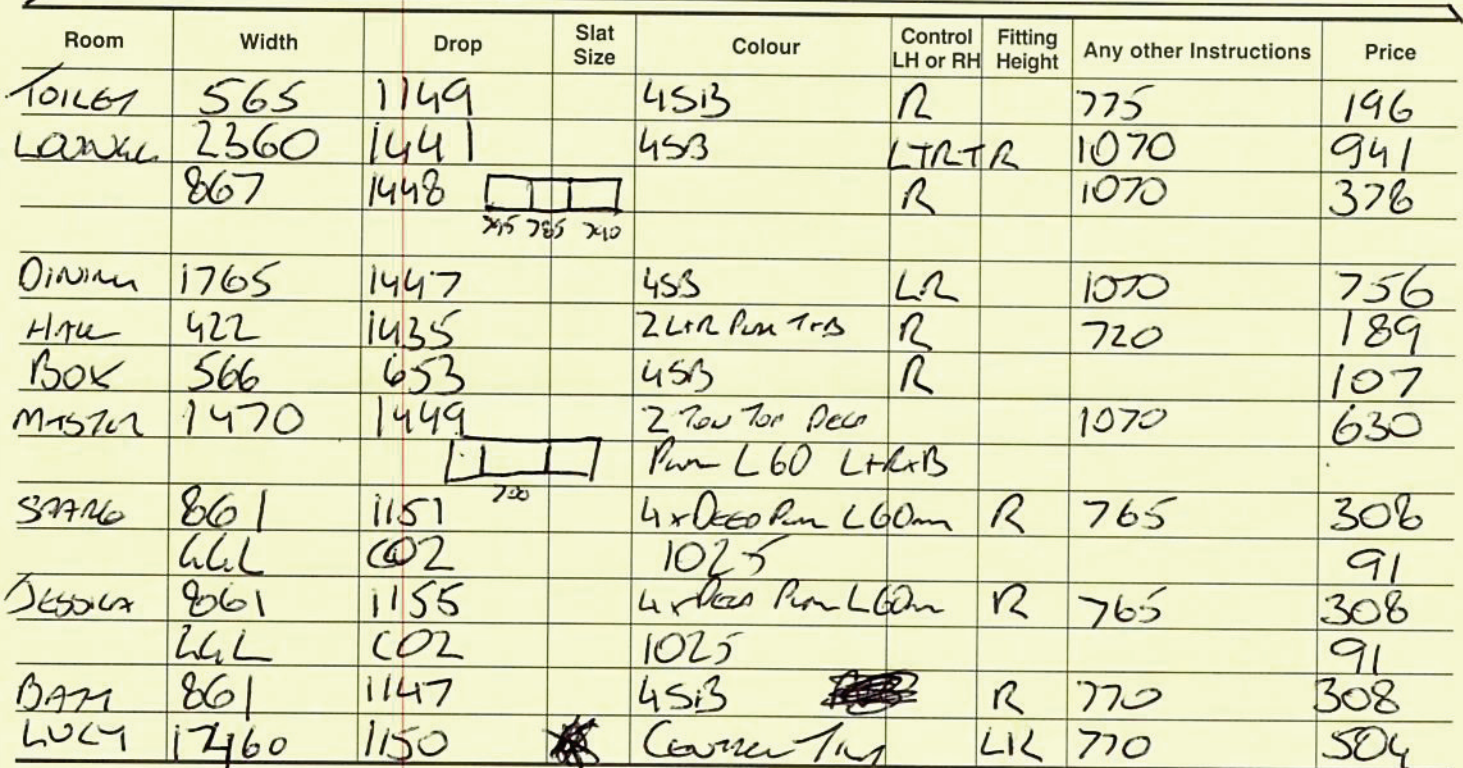 Room Width Drop Slat Size Colour Control LH or RH Fitting Height Any other Instructions Price
TOILET 565 1149 4SB R 775 196
LOUNGE 2360 1441 4SB L+R+R 1070 941
867 1448 R 1070 378
795 785 790
DINING 1765 1447 4SB LR 1070 756
HALL 422 1435 2 L+R T+B R 720 189
BOX 566 653 4SB R 107
MASTER 1470 1449 2 Top Deep 1070 630
L60 L+R+B
700
861 1151 4x Deep L60mm R 765 308
GGL C02 1025 91
JESSICA 861 1155 4x Deep L60m R 765 308
GGL C02 1025 91
BATH 861 1147 4SB R 770 308
LUCY 1150 Central Tilt LR 770 504